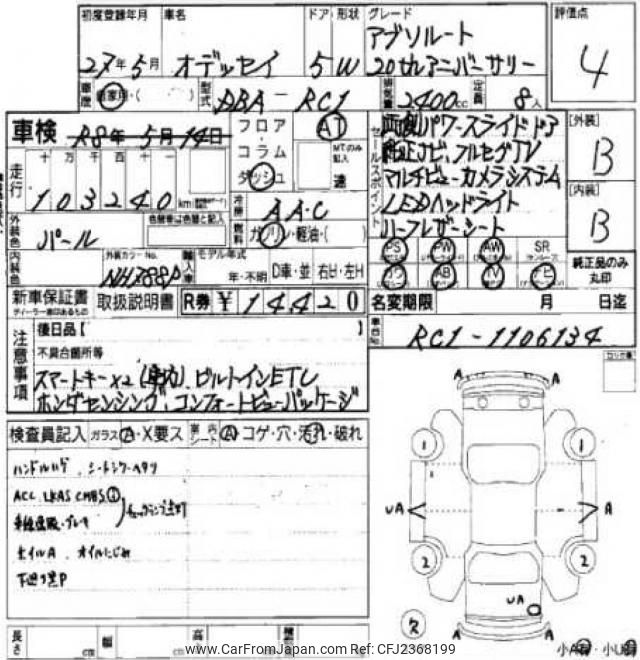 初度登録年月 車名 ドア 形状 グレード 評価点
27年5月 オデッセイ 5 W アブソルート
20thアニバーサリー 4
車歴 自家用・( ) 型式 DBA-RC1 排気量 2400cc 定員 8人
車検 R8年5月14日 フロア AT 両側パワースライドドア [外装]
コラム MTのみ記入 純正ナビ、フルセグTV B
走行 十万千百十一 ダッシュ 速 マルチビューカメラシステム
103240km 冷房 AAC LEDヘッドライト [内装]
外装色 パール 色替車は色替と記入 燃料 ガソリン・軽油・( ) ハーフレザーシート B
セールスポイント
内装色 外装カラーNo. NH788P 輸入車 モデル年式 年・不明 D車・並 右H・左H
PS PW AW SR
AB TV ナビ
純正品のみ丸印
新車保証書 取扱説明書 R券 ¥14420 名変期限 月 日迄
ディーラー印あるもの
後日品 [ ] 車台No. RC1-1106134
注意事項 不具合箇所等
スマートキー×2 ビルトインETC
ホンダセンシング、コンフォートビューパッケージ
検査員記入 ガラス A・X要ス 内 A・コゲ・穴・汚れ・破れ
ハンドルハゲ、シートシワヘタリ
ACC LKAS CMBS
オイルA、オイルにじみ
下廻りサビP
A A
1 1
UA A
2 2
UA
A A
長さ cm 幅 cm 高
www.CarFromJapan.com Ref: CFJ2368199